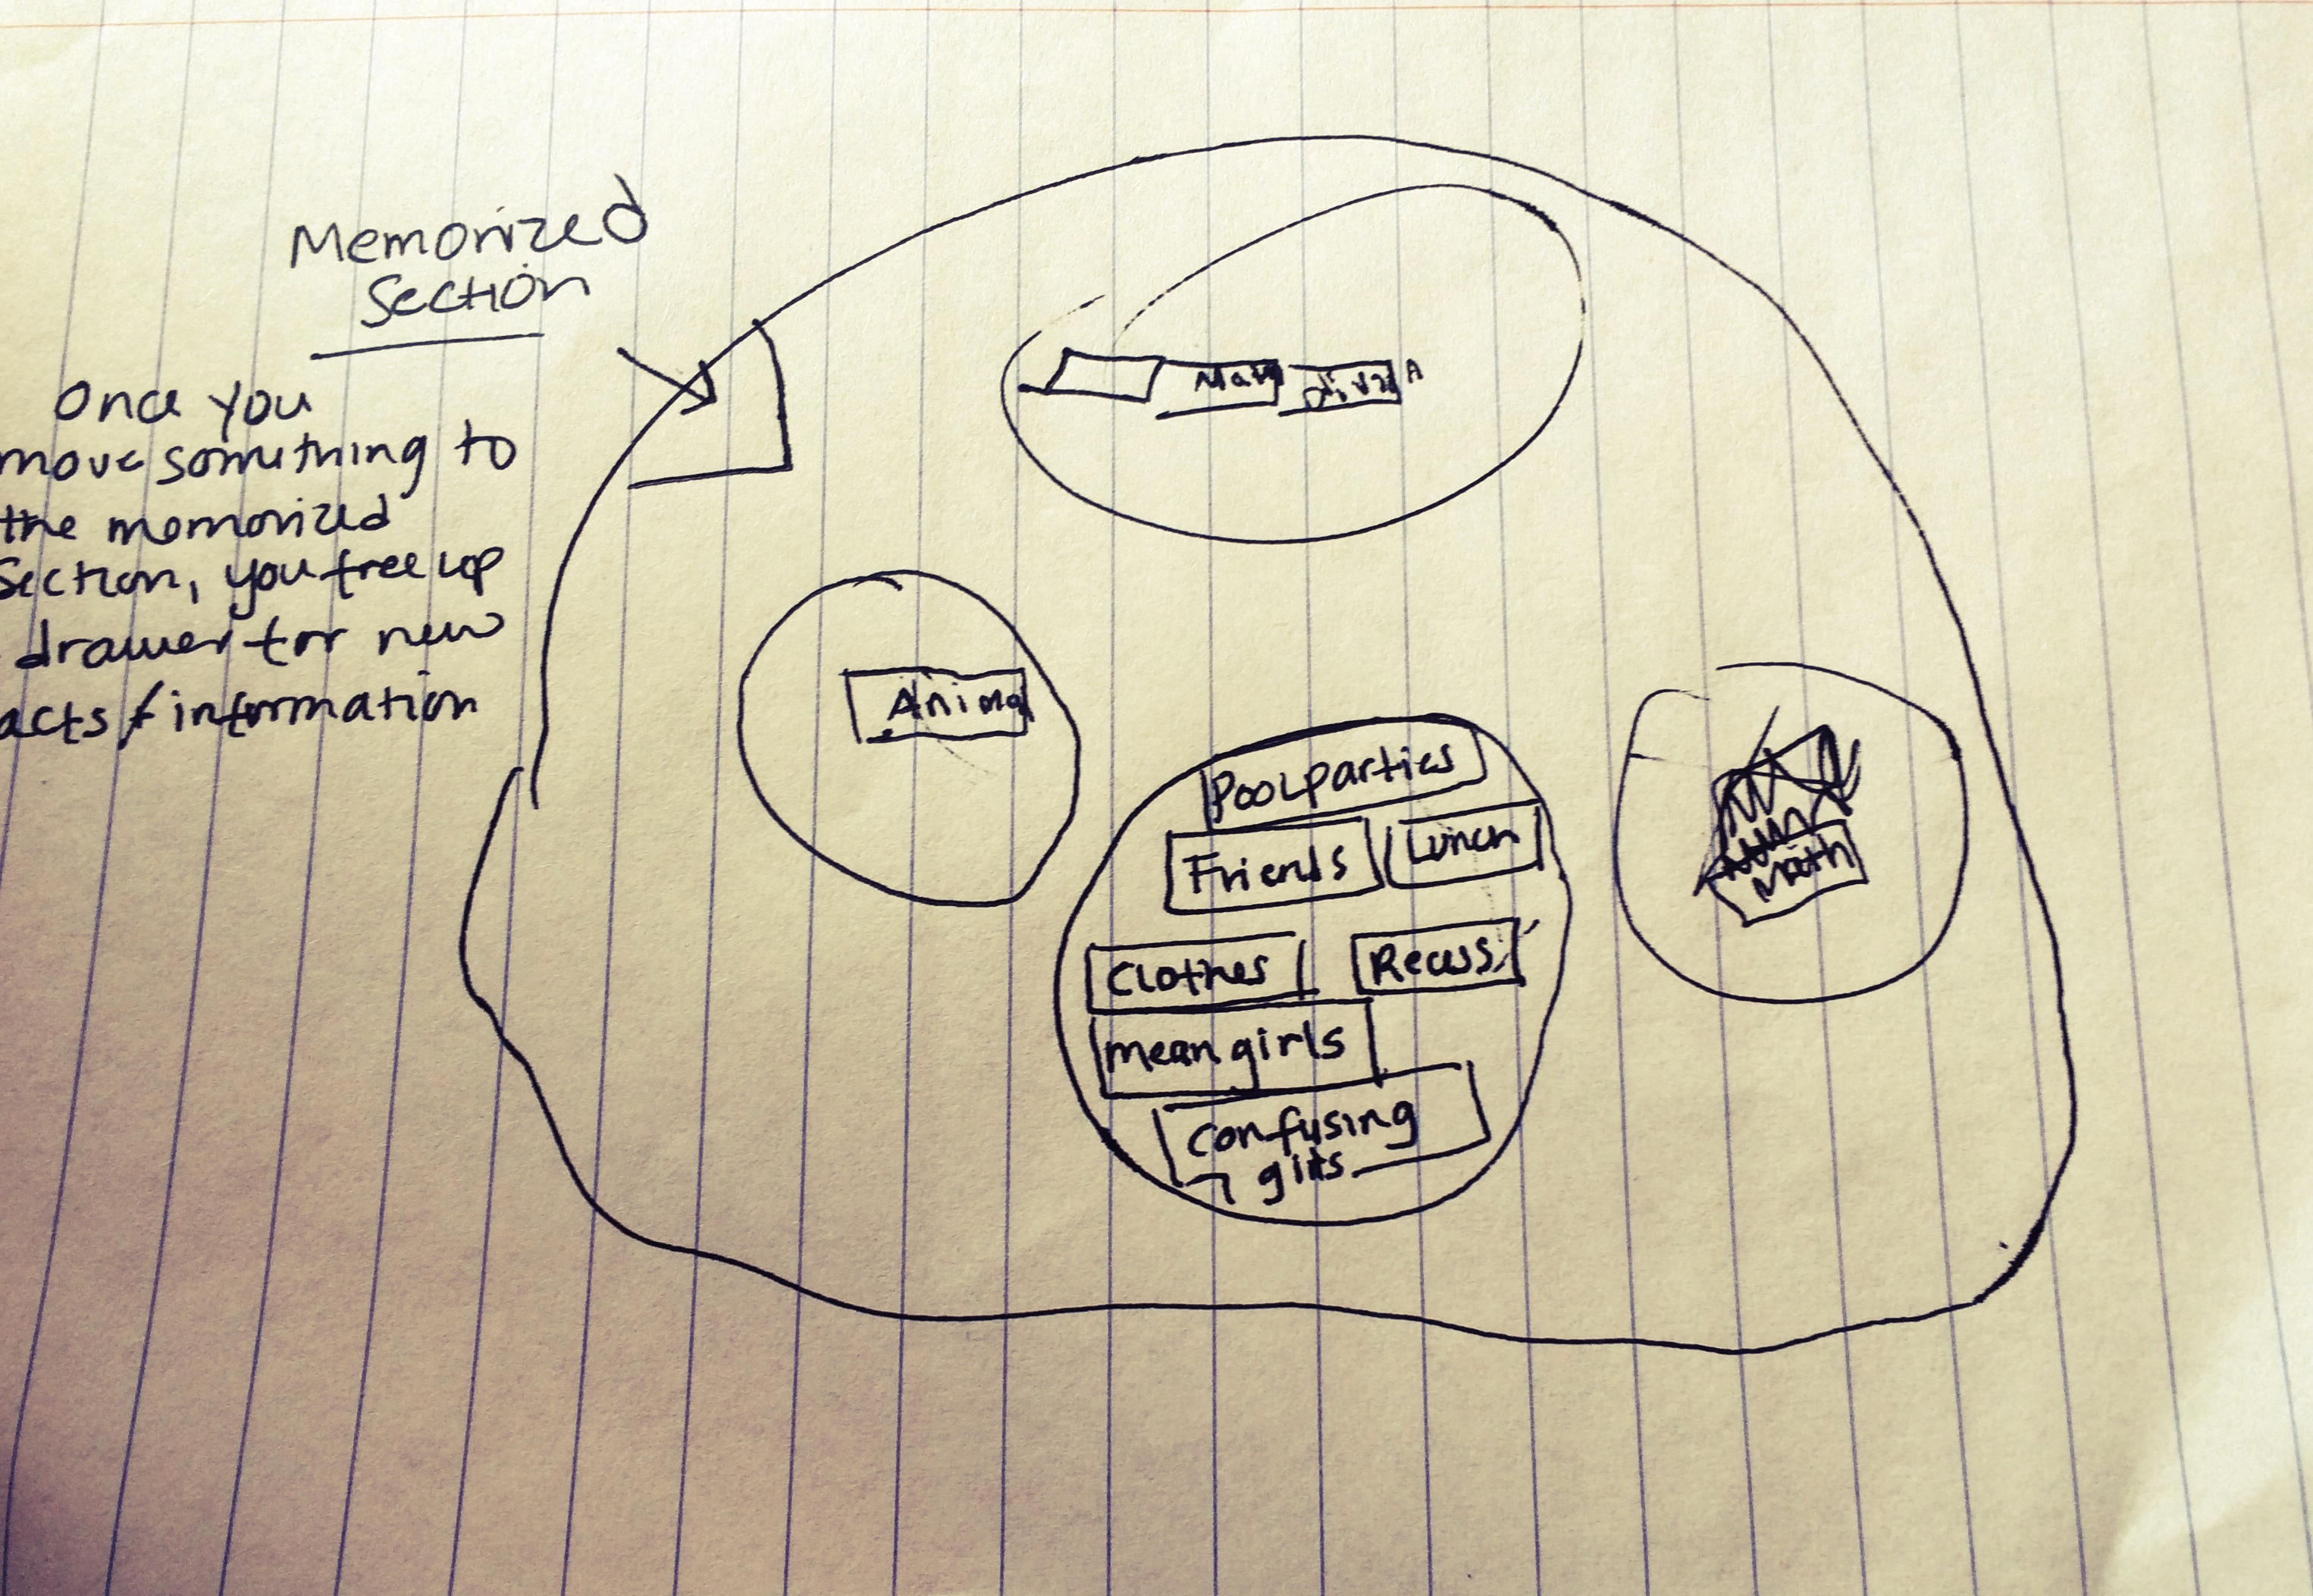 Memorized
Section
Once you
move something to
the memorized
Section, you free up
drawer for new
acts / information
Math
Anima
Poolparties
Friends
Lunch
Clothes
Recess
mean girls
confusing
girls
Math